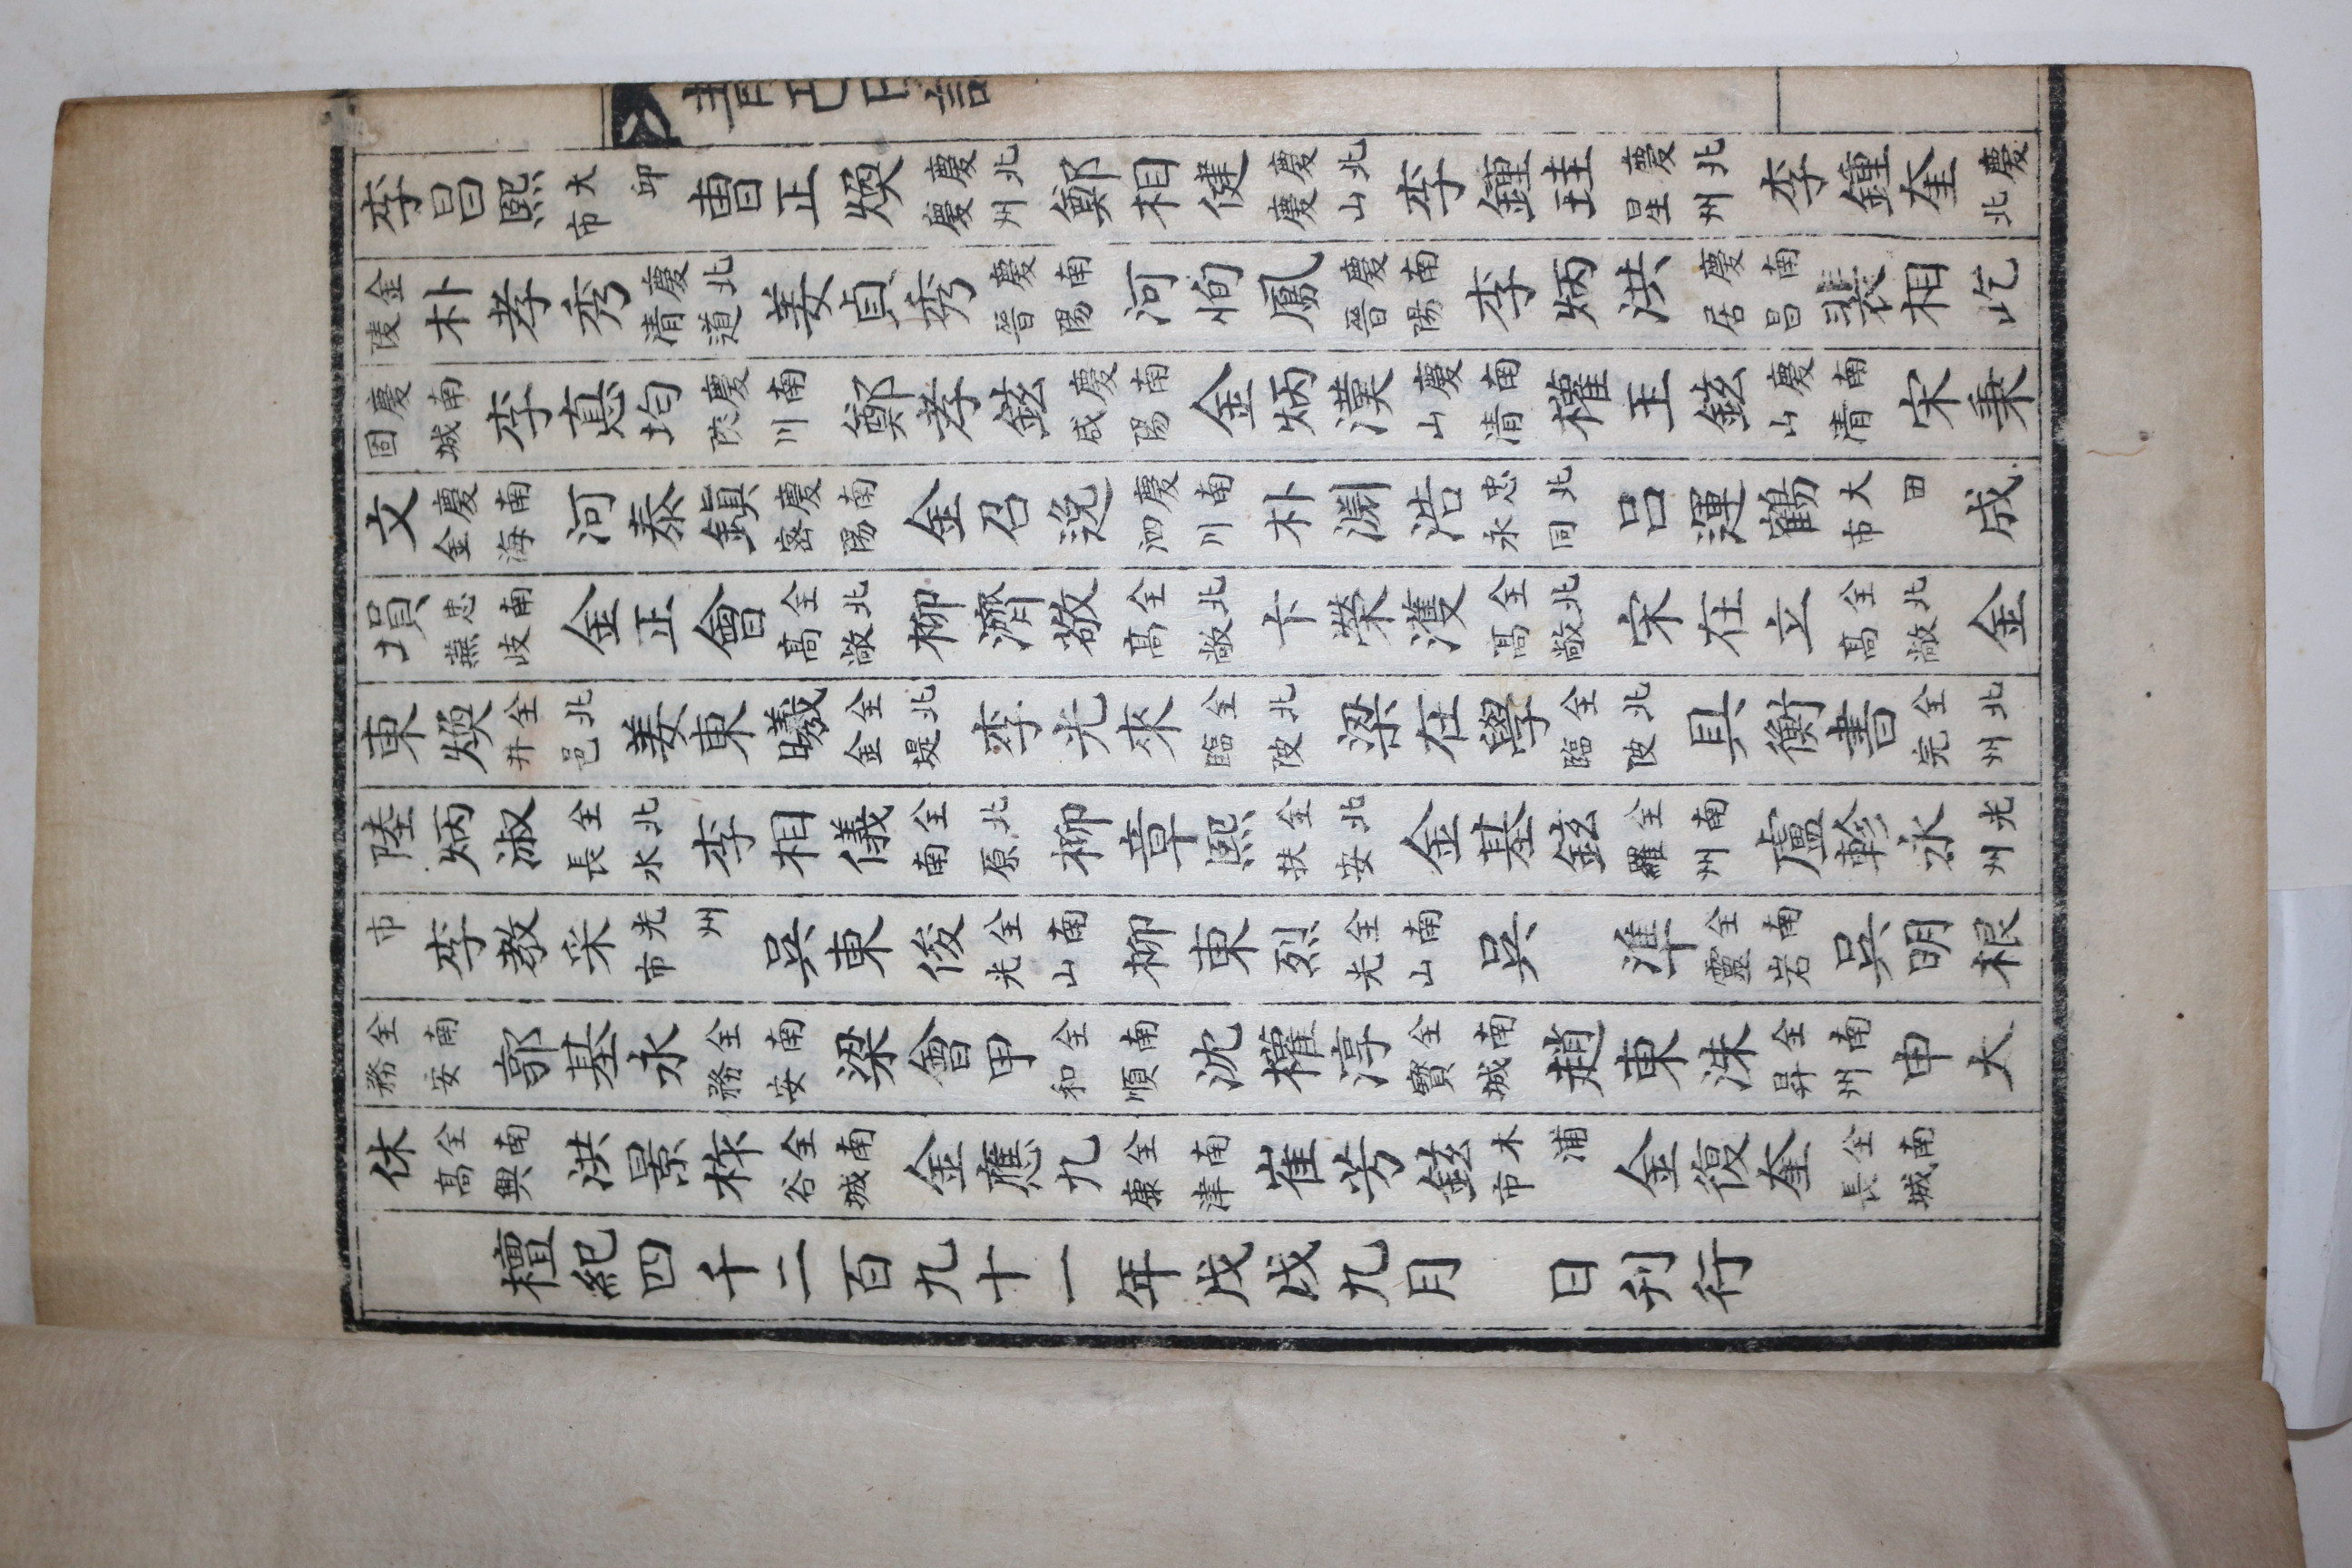 李昌熙大邱市曺正煥慶北慶州鄭相健慶北慶山李鍾珪慶北星州李鍾奎慶北
金陵朴孝秀慶北清道姜貞秀慶南晉陽河恂鳳慶南晉陽李炳洪慶南居昌裴相屹
慶南固城李悳均慶南陜川鄭孝鉉慶南咸陽金炳漢慶南山清權玉鉉慶南山清宋秉
文慶南金海河泰鎭慶南密陽金召逸慶南泗川朴淵浩忠北永同呂運鶴大田市成
塤忠南燕歧金正會全北高敞柳濟敬全北高敞卞榮濩全北高敞宋在立全北高敞金
東煥全北井邑姜東曦全北金堤李光來全北臨陂梁在學全北臨陂具衡書全北完州
陸炳淑全北長水李相儀全北南原柳章熙全北扶安金基鉉全南羅州盧軫永光州
市李教采光州市吳東俊全南光山柳東烈全南光山吳準全南靈岩吳明根
全南務安郭基永全南務安梁會甲全南和順沈權淳全南寳城趙東洙全南昇州申大
休全南高興洪景柞全南谷城金應九全南康津崔芳鉉木浦市金復奎全南長城
檀紀四千二百九十一年戊戌九月日刊行